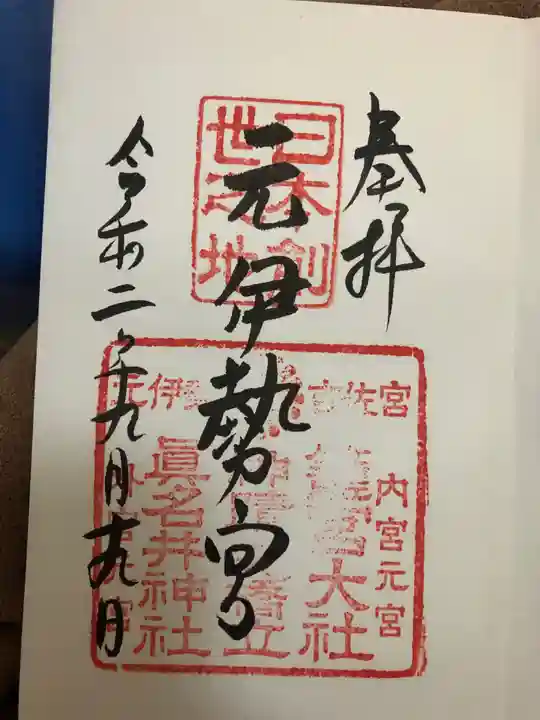 奉拝
日本創
世之地
元伊勢宮
宮
佐
吉
内宮元宮
宮大社
眞名井神社
伊
元
令和二年九月十九日